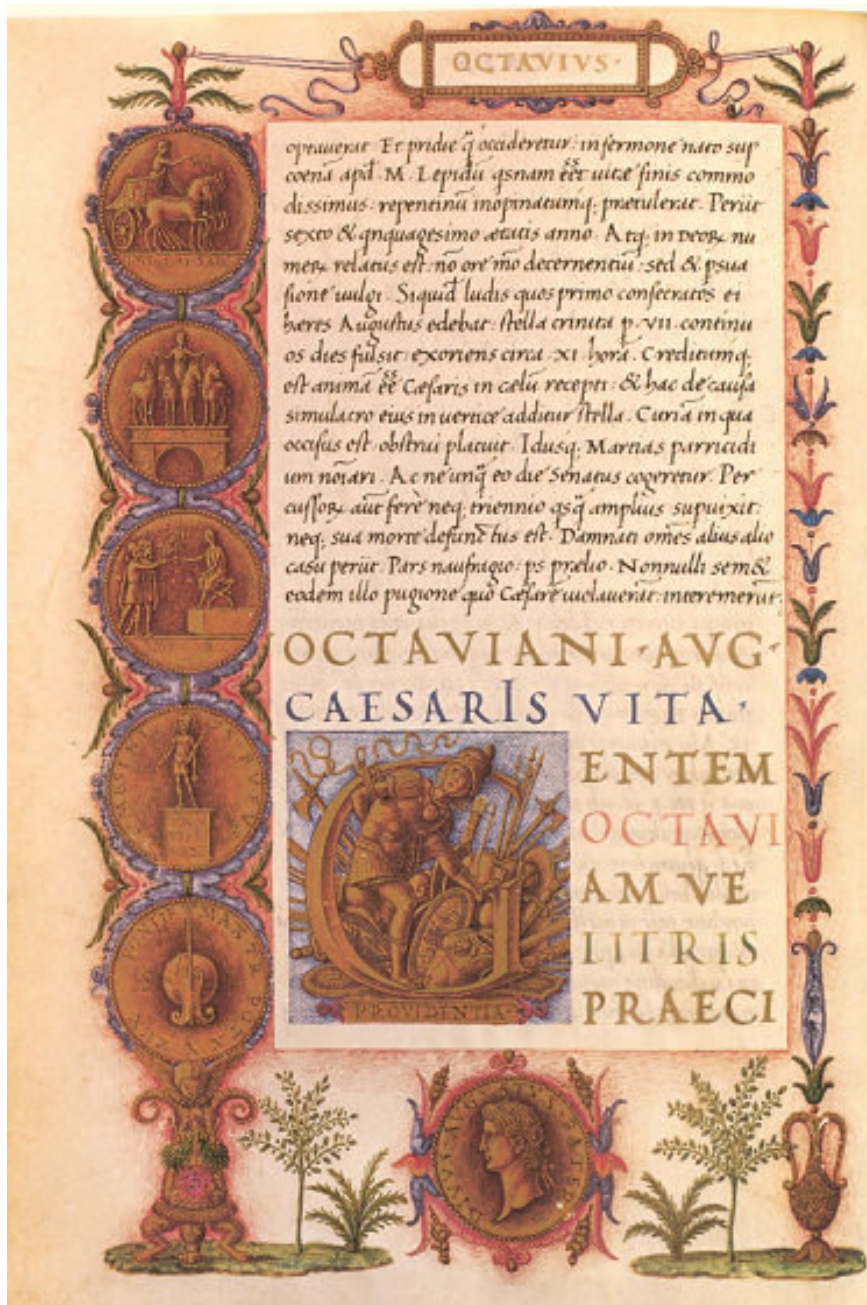 OCTAVIVS·
optauerat. Et pridie q̃ occideretur: in sermone nato sup
coenã apd̃. M. Lepidũ qsnam eẽt uitæ finis commo
dissimus: repentinũ inopinatumq; prætulerat. Periit
sexto & qnquagesimo ætatis anno. Atq; in deoꝝ nu
meꝝ relatus est: nõ ore mõ decernentiũ: sed & psua
sione uulgi. Siquid̃ ludis quos primo consecratos ei
hæres Augustus edebat: stella crinita p. VII. continu
os dies fulsit: exoriens circa. XI. horã. Creditumq;
est animã eẽ Cæsaris in cælũ recepti: & hac de causa
simulacro eius in uertice additur stella. Curiã in qua
occisus est obstrui placuit. Idusq; Martias parricidi
um noiãri. Ac ne unq̃ eo die Senatus cogeretur. Per
cussoꝝ aut̃ ferè neq; triennio qsq̃ amplius supuixit:
neq; sua morte defunctus est. Damnati omẽs alius alio
casu periit. Pars naufragio: ps prælio. Nonnulli sem&
eodem illo pugione quo Cæsarẽ uiolauerãt: interemerũt.
OCTAVIANI·AVG·
CAESARIS VITA·
ENTEM
OCTAVI
AM VE
LITRIS
PRAECI
PROVIDENTIA·